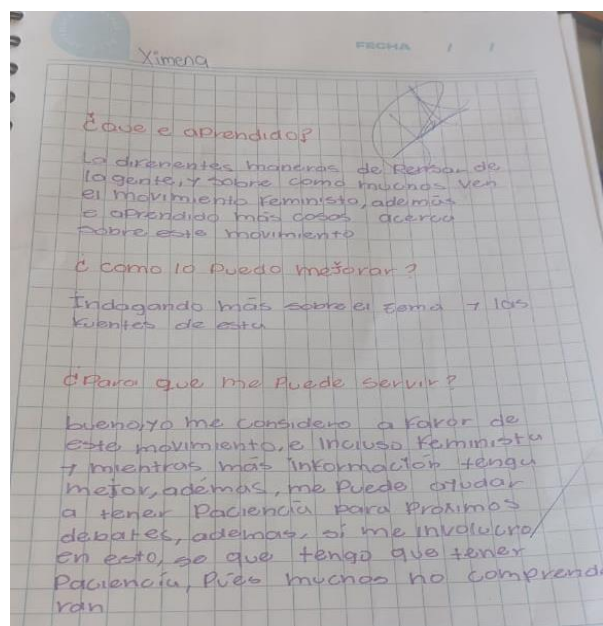 FECHA / /
Ximena
¿Que e aprendido?
La direnentes maneras de Pensar de
la gente, y sobre como muchos ven
el movimiento feministo, además
e aprendido más cosas acerca
sobre este movimiento
¿ como lo Puedo mejorar?
Indagando más sobre el tema y las
fuentes de esta
¿Para que me Puede servir?
bueno, yo me considero a favor de
este movimiento, e incluso feminista
y mientras más información tenga
mejor, además, me Puede ayudar
a tener Paciencia Para Proximos
debates, ademas, si me involucro
en esto, se que tengo que tener
Paciencia, Pues muchos no comprend
ran